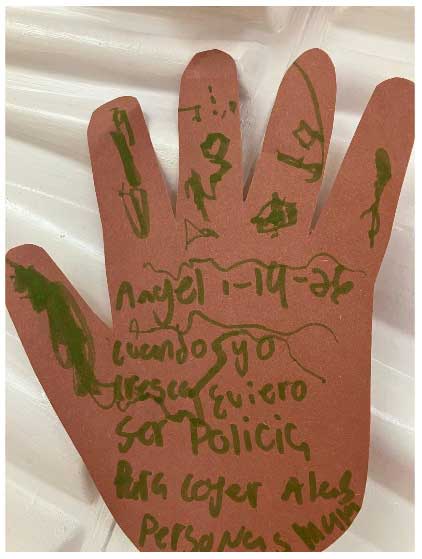 Angel 1-14-26
Cuando yo
cresca quiero
Ser Policia
Para coger Alas
Personas